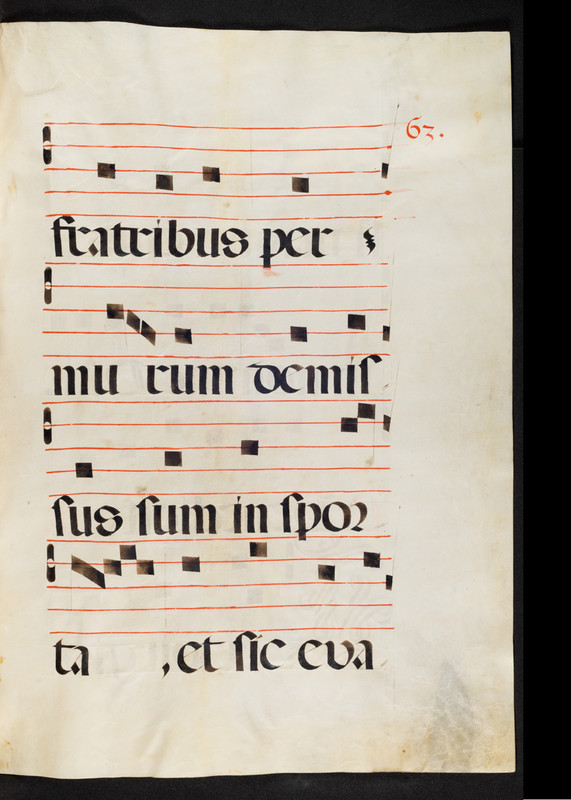 63.
fratribus per
mu rum demis
sus sum in spor
ta , et sic eva